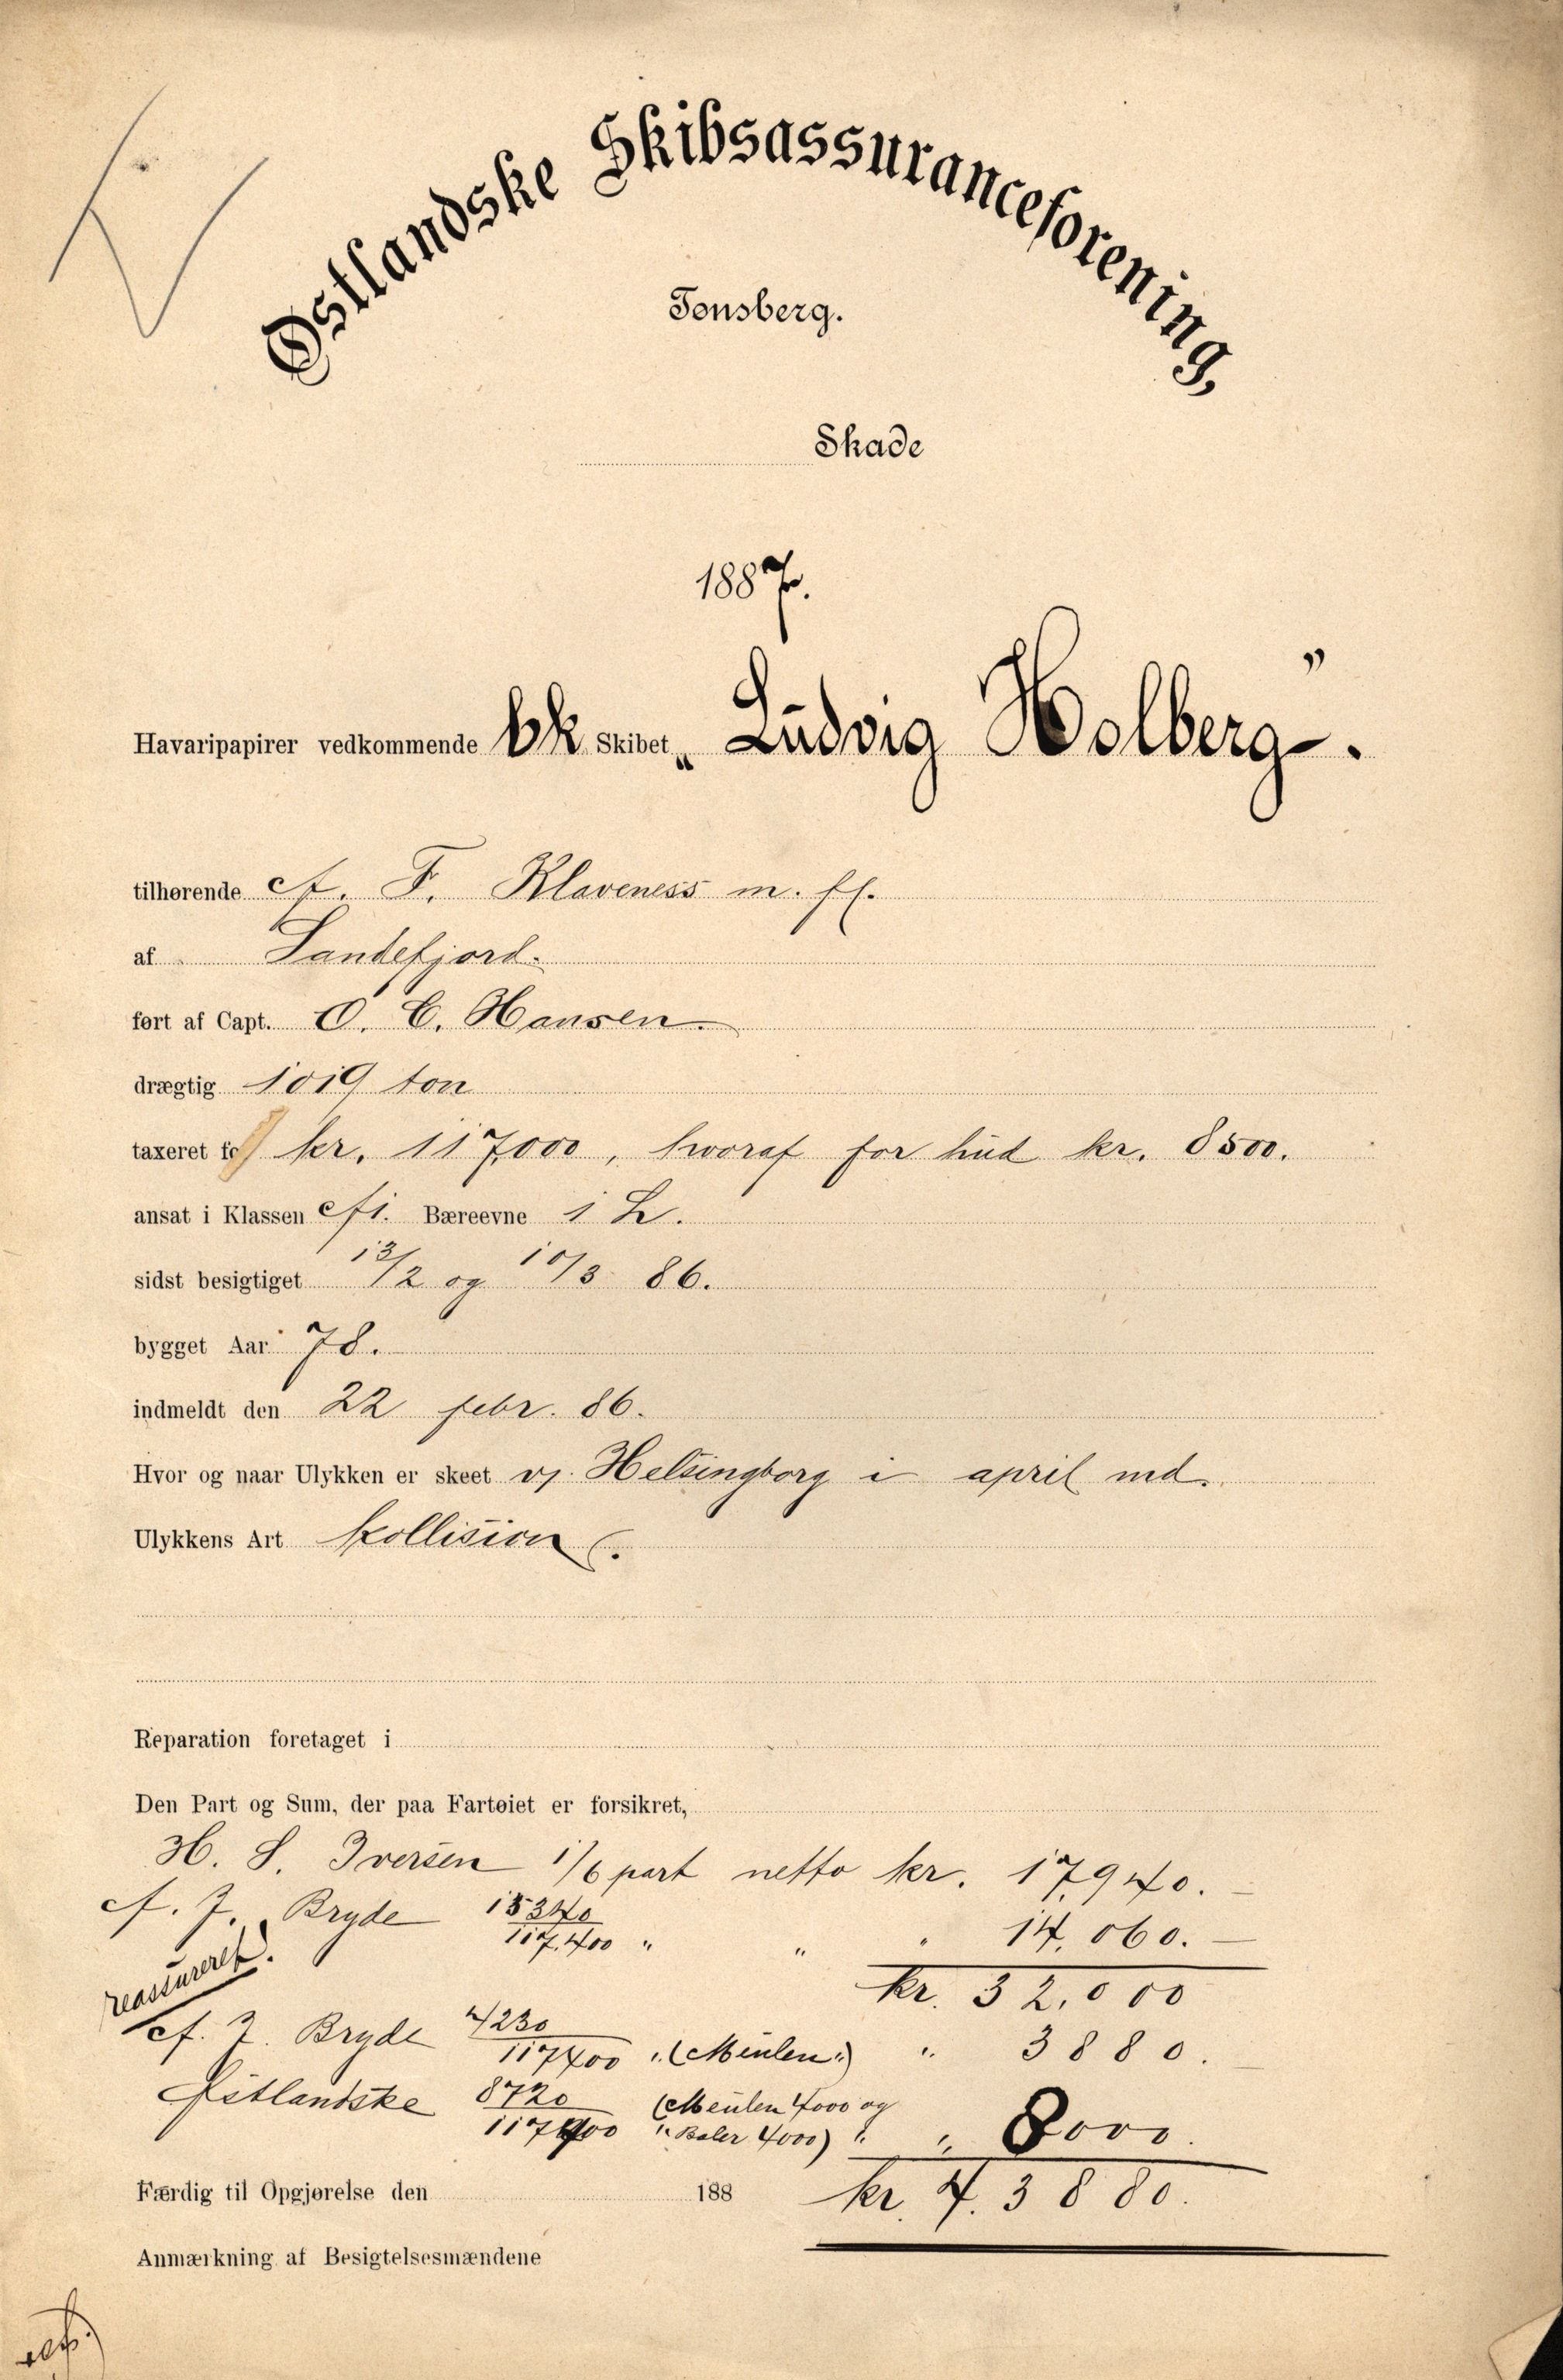 Østlandske Skibsassuranceforening,
Tønsberg.
Skade
1887.
Havaripapirer vedkommende bk Skibet „Ludvig Holberg”.
tilhørende A. F. Klaveness m. fl.
af Sandefjord.
ført af Capt. O. C. Hansen.
drægtig 1019 ton
taxeret fo kr. 117,000, hvoraf for hud kr. 8500.
ansat i Klassen A1. Bæreevne 1 L.
sidst besigtiget 13/2 og 10/3 86.
bygget Aar 78.
indmeldt den 22 febr. 86.
Hvor og naar Ulykken er skeet v/ Helsingborg i april md.
Ulykkens Art kollision.
Reparation foretaget i
Den Part og Sum, der paa Fartøiet er forsikret,
H. S. Iversen 1/6 part netto kr. 17,940.—
A. J. Bryde 15340/117,400 " " " 14,060.—
kr. 32,000
reassureret.
A. J. Bryde 4230/117400 "(Meulen") " 3880.—
Østlandske 8720/117400 (Meulen 4000 og
" Baler 4000) " " 8000.
Færdig til Opgjørelse den 188 kr. 43880.
Anmærkning af Besigtelsesmændene